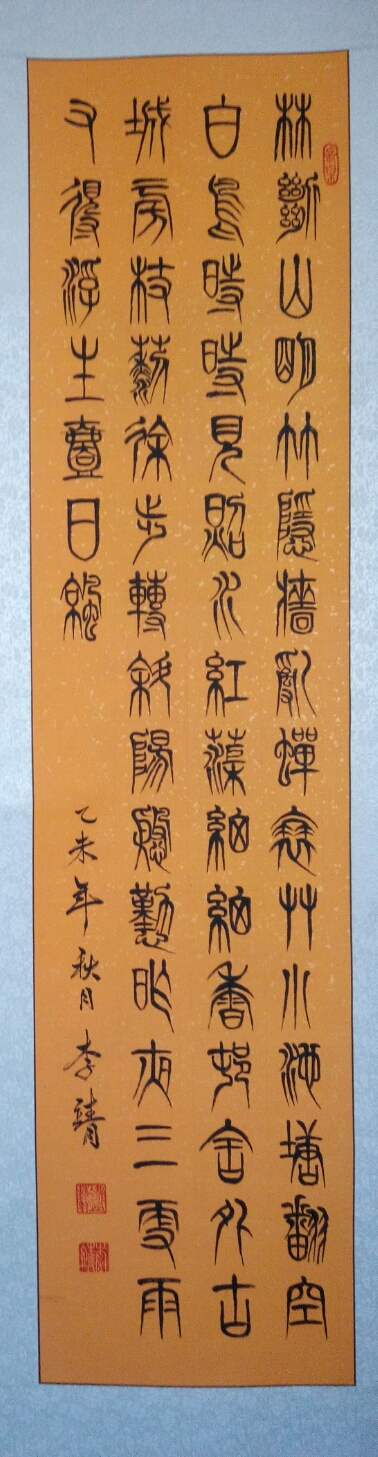 林斷山明竹隱牆亂蟬衰艸小池塘翻空
白鳥時時見照水紅蕖細細香邨舍外古
城旁杖藜徐步轉斜陽慇懃昨夜三更雨
又得浮生壹日涼
乙未年秋月李靖